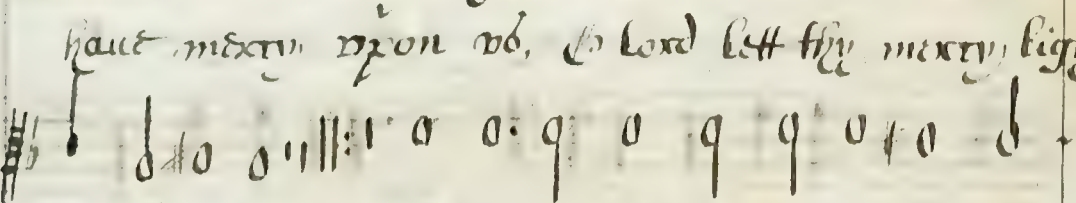 haue mercy vpon vs, O Lord lett thy mercy lig